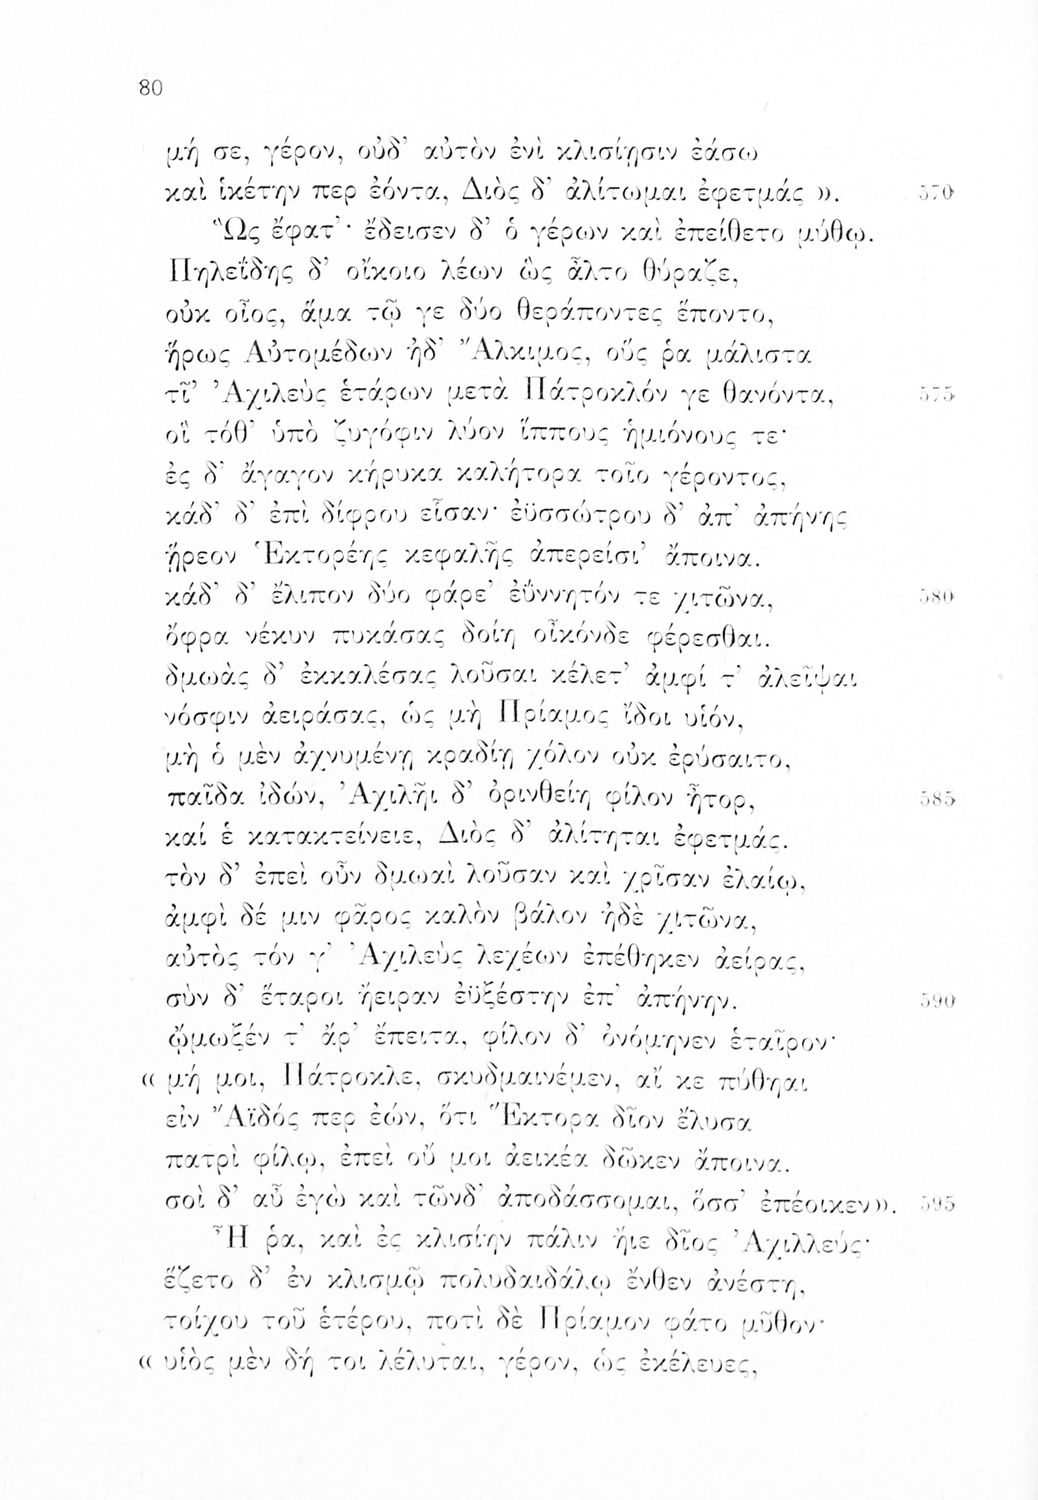 80
μή σε, γέρον, οὐδ’ αὐτὸν ἐνὶ κλισίῃσιν ἐάσω
καὶ ἱκέτην περ ἐόντα, Διὸς δ’ ἀλίτωμαι ἐφετμάς ». 570
Ὣς ἔφατ’· ἔδεισεν δ’ ὁ γέρων καὶ ἐπείθετο μύθῳ.
Πηλεΐδης δ’ οἴκοιο λέων ὣς ἆλτο θύραζε,
οὐκ οἶος, ἅμα τῷ γε δύο θεράποντες ἕποντο,
ἥρως Αὐτομέδων ἠδ’ Ἄλκιμος, οὕς ῥα μάλιστα
τῖ’ Ἀχιλεὺς ἑτάρων μετὰ Πάτροκλόν γε θανόντα, 575
οἳ τόθ’ ὑπὸ ζυγόφιν λύον ἵππους ἡμιόνους τε·
ἐς δ’ ἄγαγον κήρυκα καλήτορα τοῖο γέροντος,
κάδ’ δ’ ἐπὶ δίφρου εἷσαν· ἐϋσσώτρου δ’ ἀπ’ ἀπήνης
ᾕρεον Ἑκτορέης κεφαλῆς ἀπερείσι’ ἄποινα.
κάδ’ δ’ ἔλιπον δύο φάρε’ ἐΰννητόν τε χιτῶνα, 580
ὄφρα νέκυν πυκάσας δοίη οἶκόνδε φέρεσθαι.
δμωὰς δ’ ἐκκαλέσας λοῦσαι κέλετ’ ἀμφί τ’ ἀλεῖψαι
νόσφιν ἀειράσας, ὡς μὴ Πρίαμος ἴδοι υἱόν,
μὴ ὁ μὲν ἀχνυμένῃ κραδίῃ χόλον οὐκ ἐρύσαιτο,
παῖδα ἰδών, Ἀχιλῆϊ δ’ ὀρινθείη φίλον ἦτορ, 585
καί ἑ κατακτείνειε, Διὸς δ’ ἀλίτηται ἐφετμάς.
τὸν δ’ ἐπεὶ οὖν δμωαὶ λοῦσαν καὶ χρῖσαν ἐλαίῳ,
ἀμφὶ δέ μιν φᾶρος καλὸν βάλον ἠδὲ χιτῶνα,
αὐτὸς τόν γ’ Ἀχιλεὺς λεχέων ἐπέθηκεν ἀείρας,
σὺν δ’ ἕταροι ἤειραν ἐϋξέστην ἐπ’ ἀπήνην. 590
ᾤμωξέν τ’ ἄρ’ ἔπειτα, φίλον δ’ ὀνόμηνεν ἑταῖρον·
« μή μοι, Πάτροκλε, σκυδμαινέμεν, αἴ κε πύθηαι
εἰν Ἄϊδός περ ἐών, ὅτι Ἕκτορα δῖον ἔλυσα
πατρὶ φίλῳ, ἐπεὶ οὔ μοι ἀεικέα δῶκεν ἄποινα.
σοὶ δ’ αὖ ἐγὼ καὶ τῶνδ’ ἀποδάσσομαι, ὅσσ’ ἐπέοικεν». 595
Ἦ ῥα, καὶ ἐς κλισίην πάλιν ἤιε δῖος Ἀχιλλεύς·
ἕζετο δ’ ἐν κλισμῷ πολυδαιδάλῳ ἔνθεν ἀνέστη,
τοίχου τοῦ ἑτέρου, ποτὶ δὲ Πρίαμον φάτο μῦθον·
« υἱὸς μὲν δή τοι λέλυται, γέρον, ὡς ἐκέλευες,